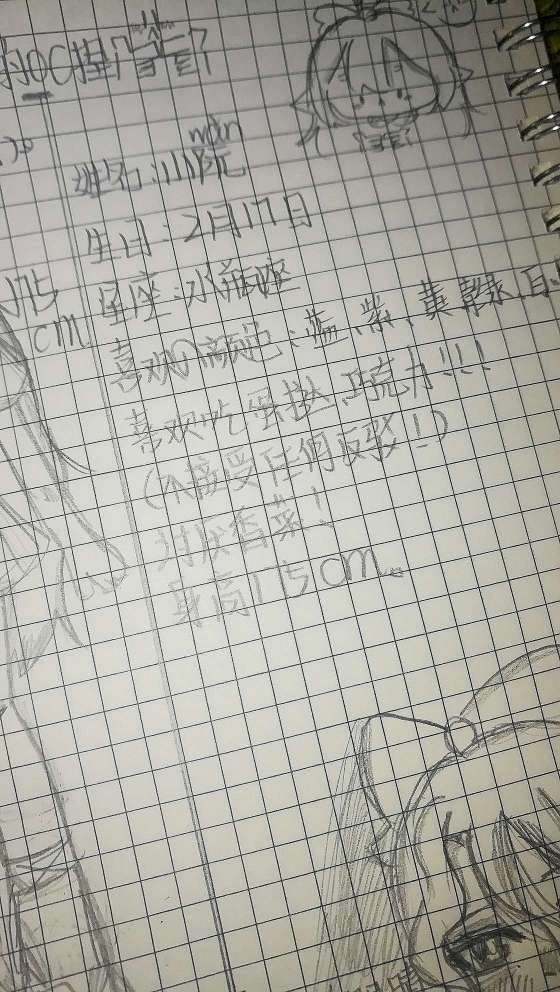 OC
姓名:小阮
wan
生日:2月17日
星座:水瓶座
喜欢的颜色:蓝、紫、黄、绿、白
喜欢吃蛋挞、巧克力!!!
(不接受任何反驳!)
讨厌香菜!
身高175cm。
175
cm